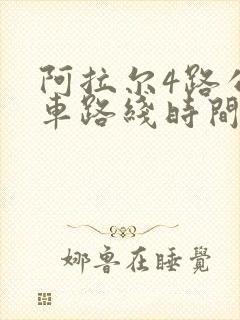 阿拉尔4路公
車路綫時間
娜鲁在睡覺